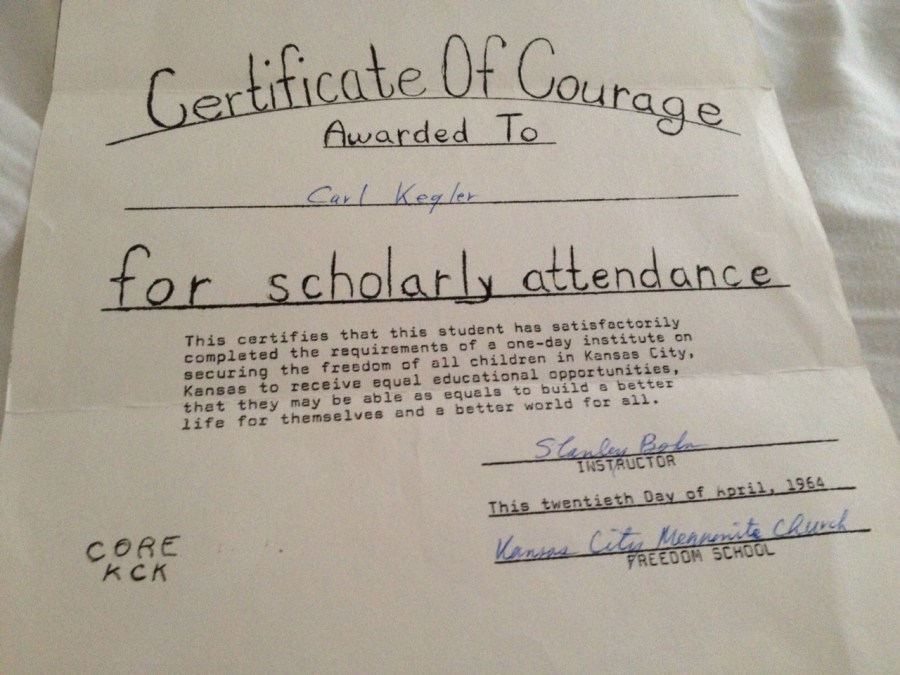 Certificate Of Courage
Awarded To
Carl Kegler
for scholarly attendance
This certifies that this student has satisfactorily
completed the requirements of a one-day institute on
securing the freedom of all children in Kansas City,
Kansas to receive equal educational opportunities,
that they may be able as equals to build a better
life for themselves and a better world for all.
Stanley Bohn
INSTRUCTOR
This twentieth Day of April, 1964
Kansas City Mennonite Church
FREEDOM SCHOOL
CORE
KCK